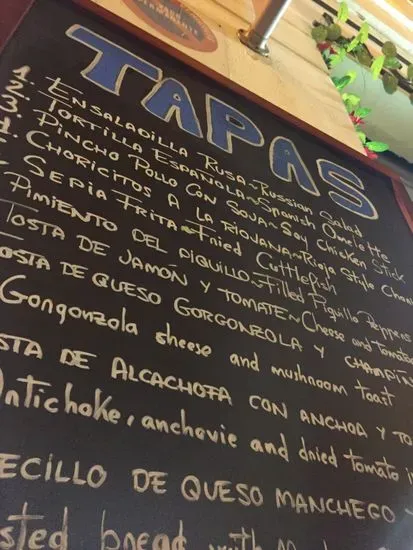 TAPAS
1. ENSALADILLA RUSA~Russian Salad
2. TORTILLA ESPAÑOLA~Spanish Omelette
3. PINCHO POLLO CON SOJA~Soy Chicken Stick
CHORICITOS A LA RIOJANA~Rioja Style Cho
SEPIA FRITA~Fried Cuttlefish
PIMIENTO DEL PIQUILLO~Filled Piquillo Peppers
TOSTA DE JAMON Y TOMATE~Cheese and Tomato
OSTA DE QUESO GORGONZOLA Y CHAMPIÑ
Gongonzola sheese and mushroom toast
STA DE ALCACHOFA CON ANCHOA Y TO
Antichoke, anchovie and dried tomato
ECILLO DE QUESO MANCHEGO
sted bread with